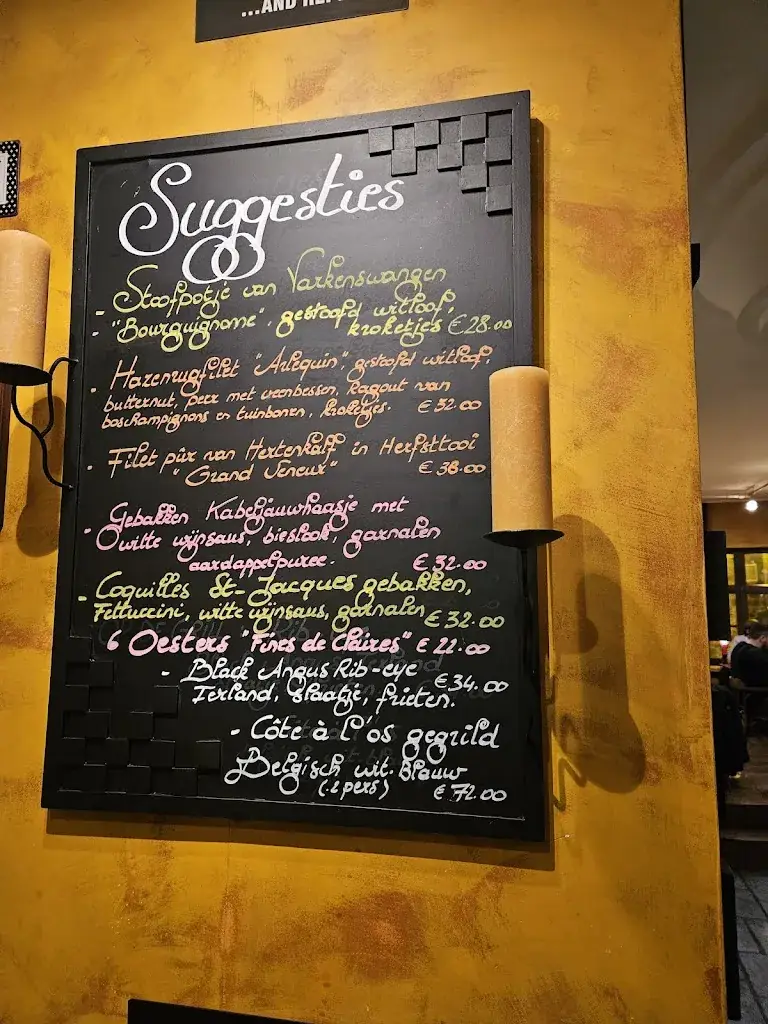 ...AND REP
Suggesties
- Stoofpotje van Varkenswangen
- "Bourguignonne", gestoofd witloof,
kroketjes € 28.00
- Hazenrugfilet "Arlequin", gestoofd witloof,
butternut, peer met veenbessen, Ragout van
boschampignons en tuinbonen, kroketjes. € 32.00
- Filet pûr van Hertenkalf in Herfsttooi
"Grand Veneur" € 38.00
- Gebakken Kabeljauwhaasje met
witte wijnsaus, bieslook, garnalen
aardappelpuree. € 32.00
- Coquilles St-Jacques gebakken,
Fettuccini, witte wijnsaus, garnalen € 32.00
6 Oesters "Fines de Claires" € 22.00
- Black Angus Rib-eye
Ierland, slaatje, frieten. € 34.00
- Côte à l'os gegrild
Belgisch wit. Blauw
(2 pers) € 72.00